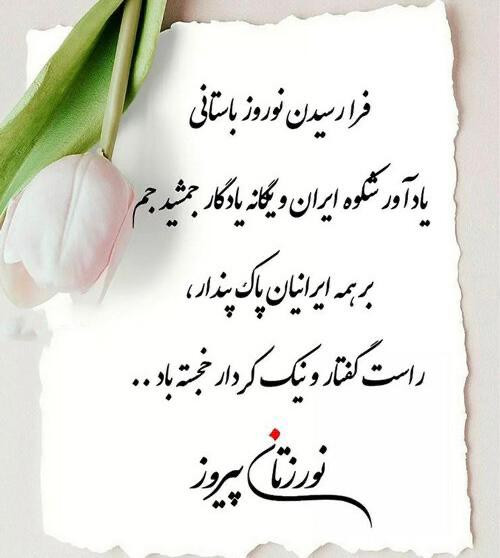 فرا رسیدن نوروز باستانی
یادآور شکوه ایران و یگانه یادگار جمشید جم
بر همه ایرانیان پاک پندار،
راست گفتار و نیک کردار خجسته باد . .
نورزتان پیروز